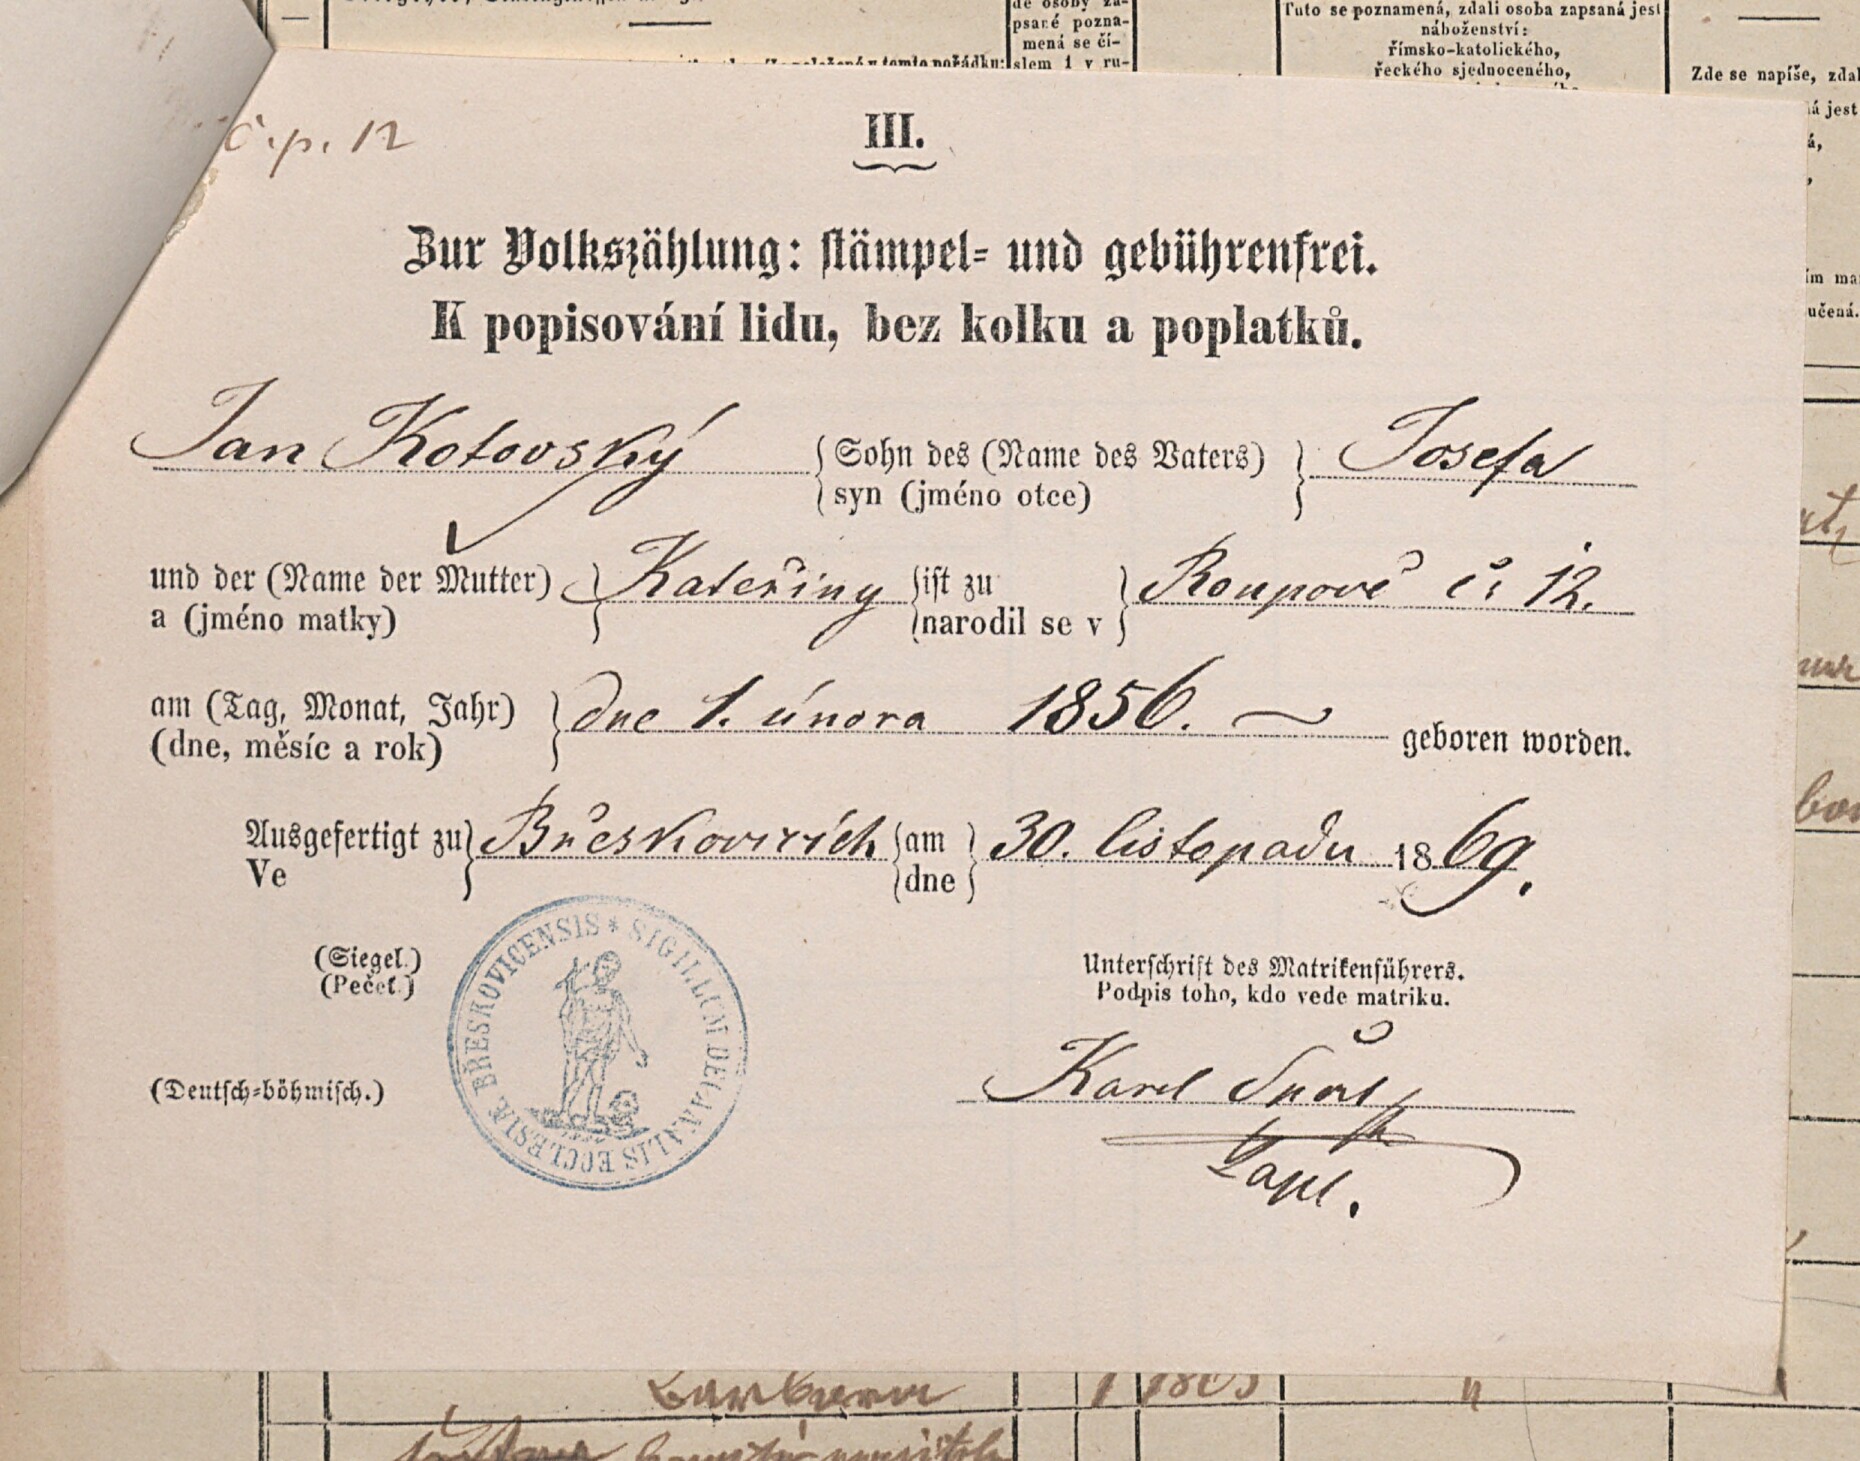 de osoby za-
psané pozna-
mená se čí-
slem 1 v ru-
Tuto se poznamená, zdali osoba zapsaná jest
náboženství:
římsko-katolického,
řeckého sjednoceného,
Zde se napíše, zdal
čp. 12
III.
Zur Volkszählung: stämpel- und gebührenfrei.
K popisování lidu, bez kolku a poplatků.
Jan Kotovský { Sohn des (Name des Vaters) } Josefa
syn (jméno otce)
und der (Name der Mutter) } Kateřiny { ist zu } Roupově č. 12.
a (jméno matky) narodil se v
am (Tag, Monat, Jahr) } dne 1. února 1856. — geboren worden.
(dne, měsíc a rok)
Ausgefertigt zu } Břeskovicích { am } 30. listopadu 1869.
Ve dne
SIGILLUM DECANALIS ECCLESIÆ BŘESKOVICENSIS *
(Siegel.)
(Pečeť.)
Unterschrift des Matrikenführers.
Podpis toho, kdo vede matriku.
(Deutsch-böhmisch.)
Karel
kapl.